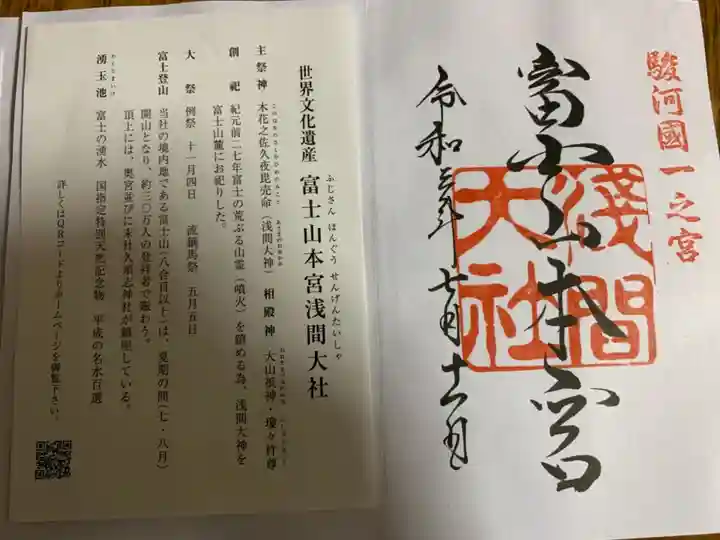 駿河國一之宮
富士山本宮
淺間大社
令和三年七月十一日
世界文化遺産 富士山本宮浅間大社
ふじさん ほんぐう せんげんたいしゃ
主祭神 木花之佐久夜毘売命(浅間大神) 相殿神 大山祇神・瓊々杵尊
このはなのさくやひめのみこと あさまのおおかみ おおやまづみのかみ ににぎのみこと
創祀 紀元前二七年富士の荒ぶる山霊(噴火)を鎮める為、浅間大神を
富士山麓にお祀りした。
大祭 例祭 十一月四日 流鏑馬祭 五月五日
富士登山 当社の境内地である富士山(八合目以上)は、夏期の間(七・八月)
開山となり、約三〇万人の登拝者で賑わう。
頂上には、奥宮並びに末社久須志神社が鎮座している。
湧玉池 富士の湧水 国指定特別天然記念物 平成の名水百選
わくたまいけ
詳しくはQRコードよりホームページを御覧下さい。